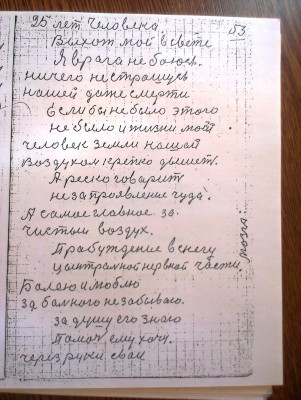 25 лет Человека. 53
Выхот мой в свете
Я врага не боюсь.
ничего не страшусь
нашей даже смерти
Если бы не было этого
не было и жизни моей
человек земли нашей
воздухом крепко дышет.
А реско говарит
не за проявление чуда.
А самое главное за
чистый воздух.
Прабуждение в снегу
центральной нервной части мозга.
Балею и люблю
за балного незабываю.
за душу его знаю
Помоч ему хочу.
через руки сваи